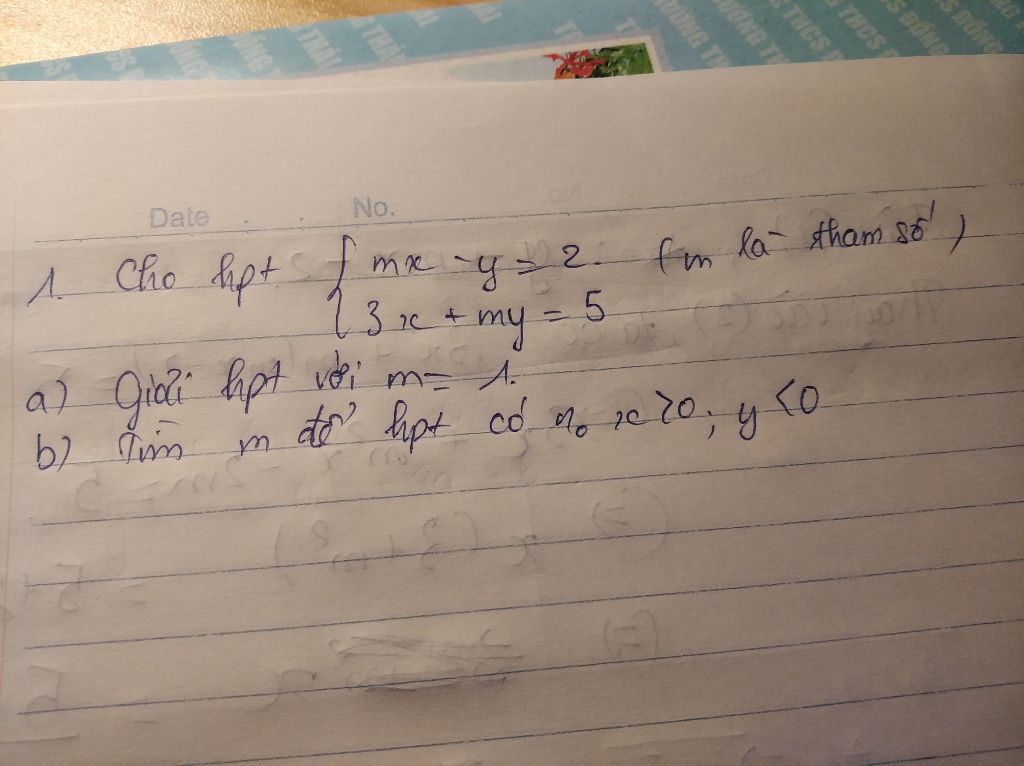 THCS ĐỒNG THÁI
Date No.
1. Cho hpt { mx - y = 2. (m là tham số)
3x + my = 5
a) Giải hpt với m = 1.
b) Tìm m để hpt có n0 x>0; y<0